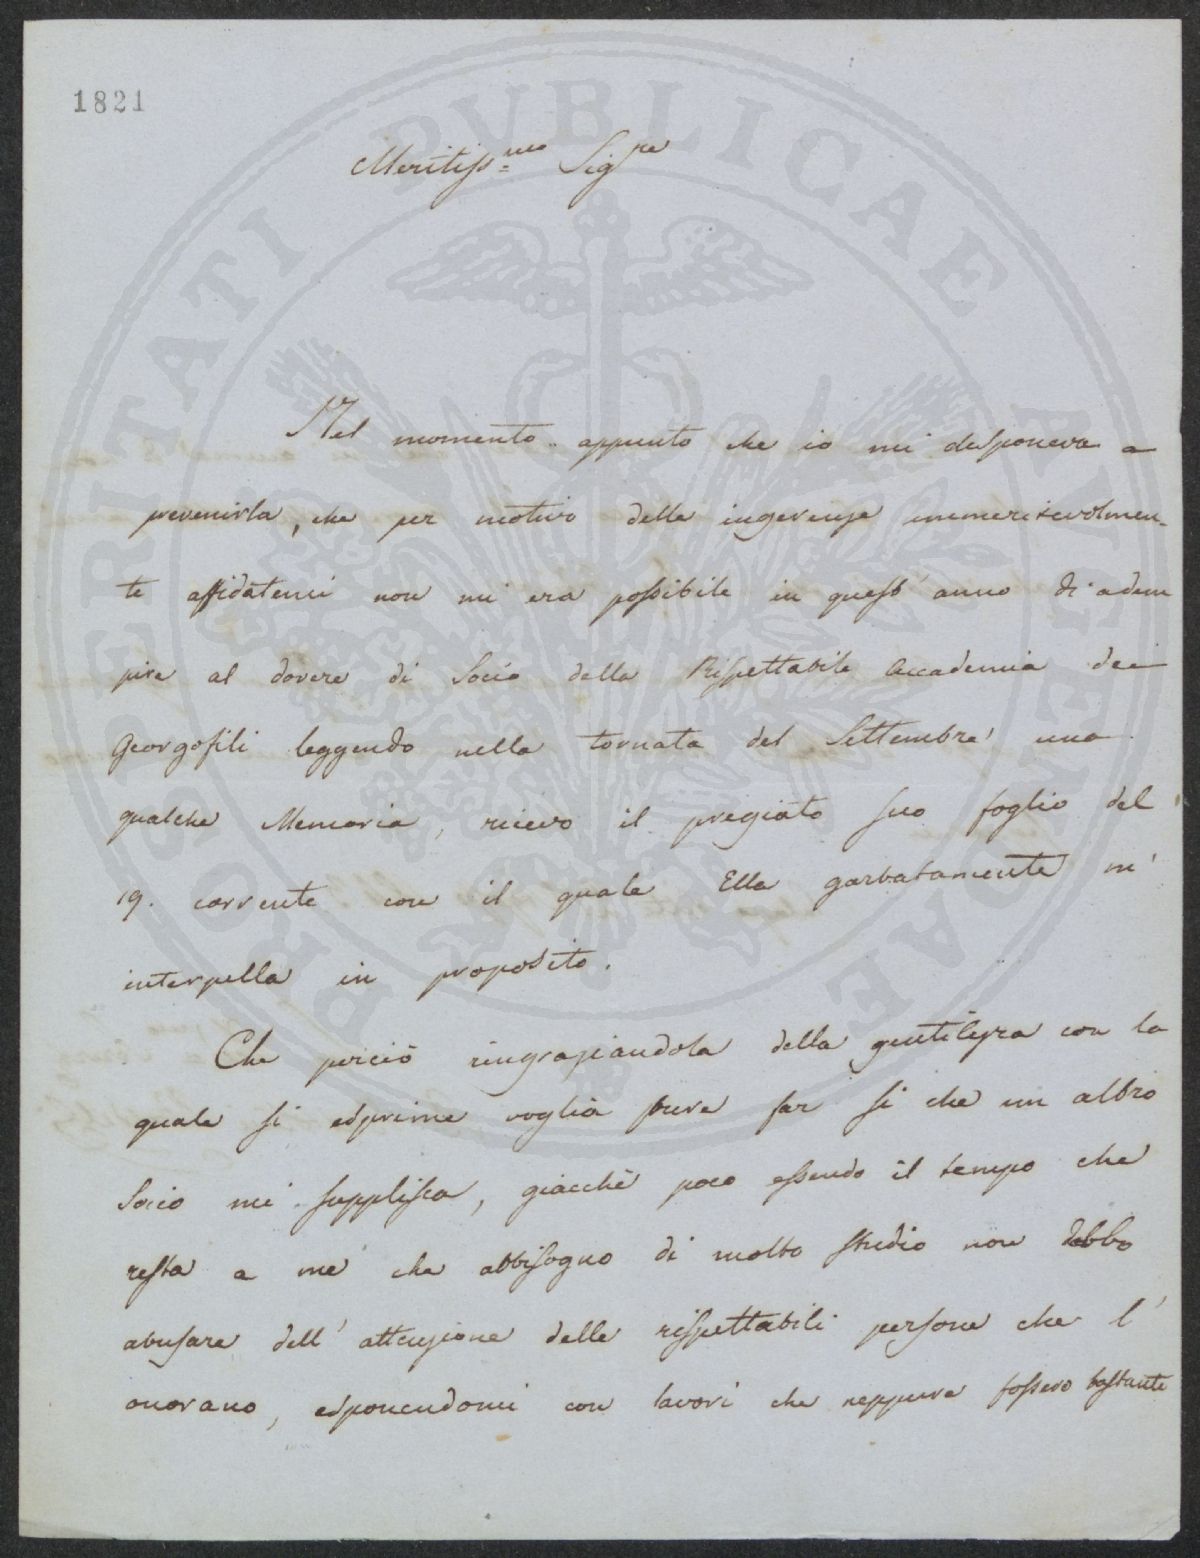 1821
Meritiss.mo Sig.re
Nel momento appunto che io mi disponeva a
prevenirla, che per motivo delle ingerenze immeritevolmen-
te affidatemi non mi era possibile in quest' anno di adem
pire al dovere di Socio della Rispettabile Accademia dei
Georgofili leggendo nella tornata del Settembre una
qualche Memoria, ricevo il pregiato suo foglio del
19. corrente con il quale Ella garbatamente m'
interpella in proposito.
Che perciò ringraziandola della gentilezza con la
quale si esprime voglia pure far si che un altro
Socio mi supplisca, giacchè poco essendo il tempo che
resta a me che abbisogno di molto studio non debbo
abusare dell' attenzione delle rispettabili persone che l'
onorano, esponendomi con lavori che neppure fossero bastante
PROSPERITATI PVBLICAE AVGENDAE